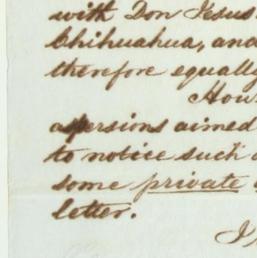 with Don Jesus
Chihuahua, and
therefore equally
How
aspersions aimed
to notice such
some private
letter.
I